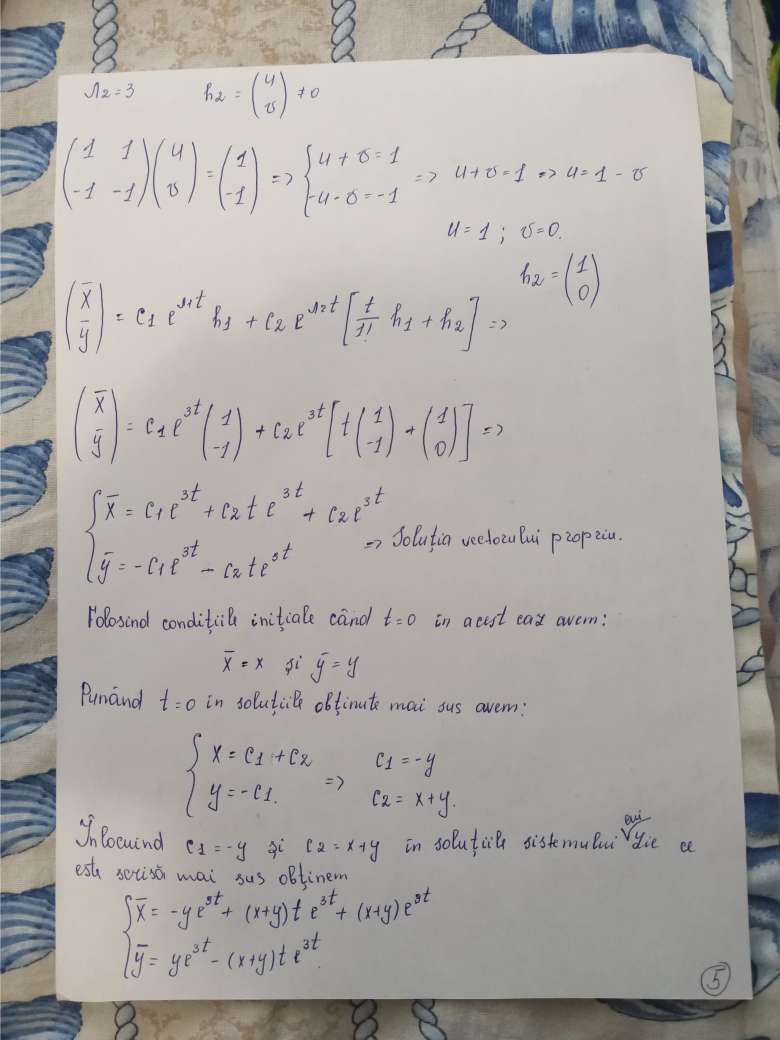 λ2=3 h2 = (u v) ≠0
(1 1 -1 -1)(u v) = (1 -1) => {u + v = 1 -u - v = -1 => u+v=1 => u=1-v
u=1 ; v=0.
h2 = (1 0)
(x̄ ȳ) = C1 e^λ1t h1 + C2 e^λ2t [t/1! h1 + h2] =>
(x̄ ȳ) = C1 e^3t (1 -1) + C2 e^3t [t(1 -1) + (1 0)] =>
{x̄ = C1 e^3t + C2 t e^3t + C2 e^3t
ȳ = -C1 e^3t - C2 t e^3t => Soluția vectorului propriu.
Folosind condițiile inițiale când t=0 în acest caz avem:
x̄ = x și ȳ = y
Punând t=0 în soluțiile obținute mai sus avem:
{x = C1 + C2 => C1 = -y
y = -C1. C2 = x+y.
Înlocuind C1=-y și C2=x+y în soluțiile sistemului lui Lie ce
este scrisă mai sus obținem
{x̄ = -ye^3t + (x+y)t e^3t + (x+y)e^3t
ȳ = ye^3t - (x+y)t e^3t.
5